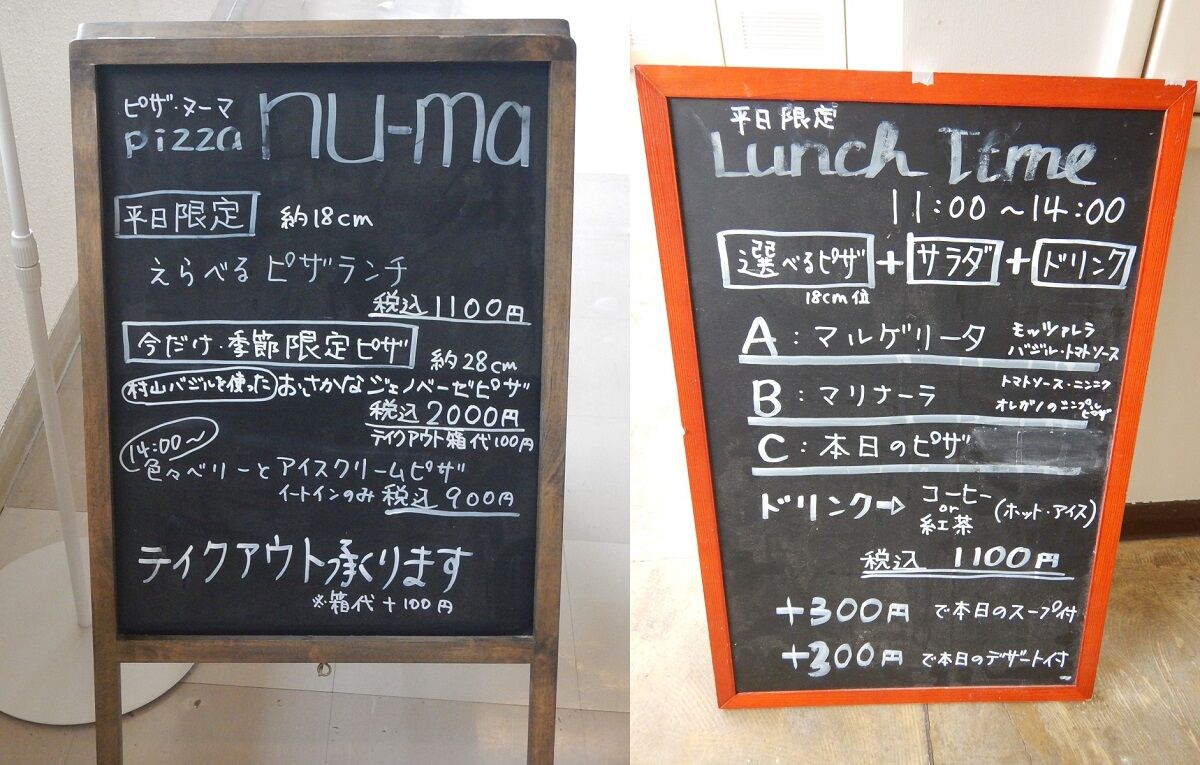 ピザ・ヌーマ
pizza nu-ma
平日限定 約18cm
えらべるピザランチ
税込1100円
今だけ・季節限定ピザ 約28cm
村山バジルを使った おさかなジェノベーゼピザ
税込2000円
テイクアウト箱代100円
14:00〜
色々ベリーとアイスクリームピザ
イートインのみ 税込900円
テイクアウト承ります
※箱代+100円
平日限定
Lunch Time
11:00〜14:00
選べるピザ+サラダ+ドリンク
18cm位
A:マルゲリータ モッツァレラ
バジル・トマトソース
B:マリナーラ トマトソース・ニンニク
オレガノのシンプル
ピザ
C:本日のピザ
ドリンク→ コーヒー
or
紅茶
(ホット・アイス)
税込 1100円
+300円 で本日のスープ付
+300円 で本日のデザート付